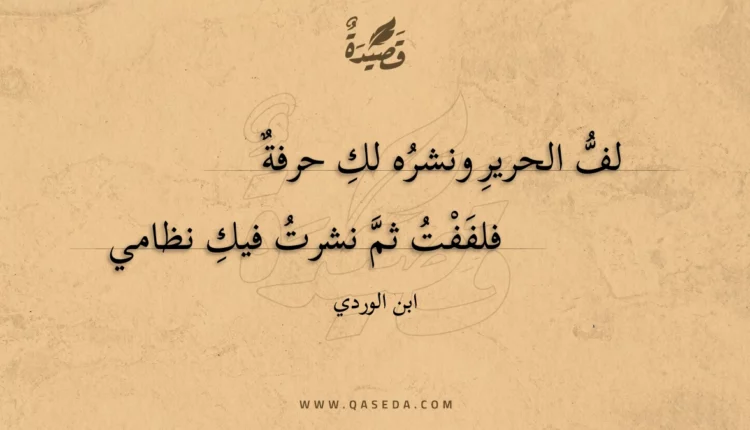 قَصِيْدَةٌ
لفُّ الحريرِ ونشرُه لكِ حرفةٌ
فلفَفْتُ ثمَّ نشرتُ فيكِ نظامي
ابن الوردي
WWW.QASEDA.COM